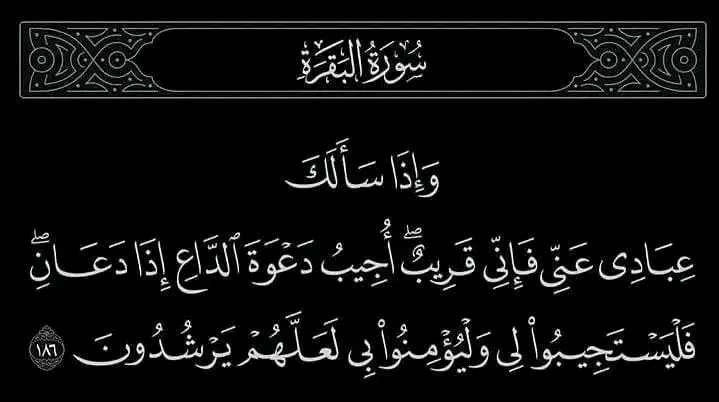 سُورَةُ البَقَرَةِ
وَإِذَا سَأَلَكَ
عِبَادِى عَنِّى فَإِنِّى قَرِيبٌ ۖ أُجِيبُ دَعْوَةَ ٱلدَّاعِ إِذَا دَعَانِ ۖ
فَلْيَسْتَجِيبُوا۟ لِى وَلْيُؤْمِنُوا۟ بِى لَعَلَّهُمْ يَرْشُدُونَ ١٨٦